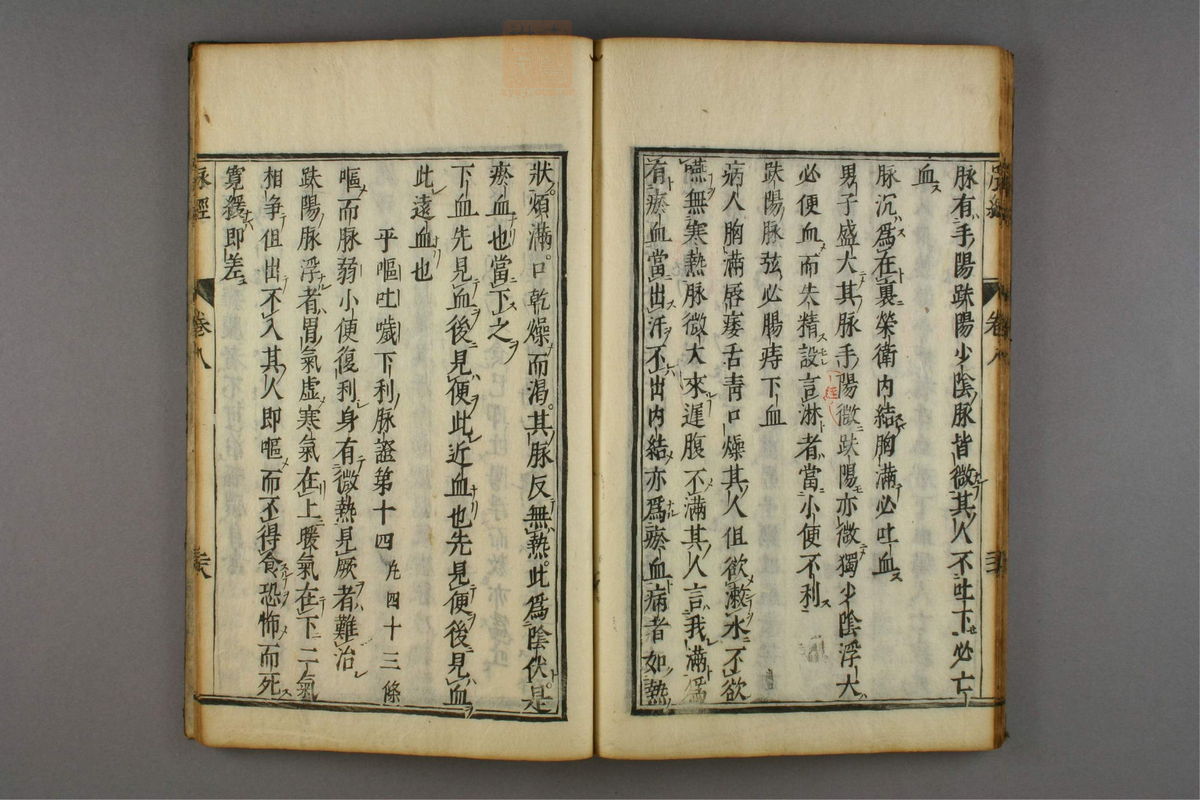 脉有手陽趺陽少陰脉皆微其人不吐下必亡
血
脉沉爲在裏榮衛内結胸滿必吐血
男子盛大其脉手陽微趺陽亦微獨少陰浮大
必便血而失精設言淋者當小便不利
趺陽脉弦必腸痔下血
病人胸滿唇痿舌青口燥其人但欲漱水不欲
嚥無寒熱脉微大來遲腹不滿其人言我滿爲
有瘀血當出汗不出内結亦爲瘀血病者如熱
卷八
狀煩滿口乾燥而渴其脉反無熱此爲陰伏是
瘀血也當下之
下血先見血後見便此近血也先見便後見血
此遠血也
平嘔吐噦下利脉證第十四 凢四十三條
嘔而脉弱小便復利身有微熱見厥者難治
趺陽脉浮者胃氣虚寒氣在上暖氣在下二氣
相爭但出不入其人即嘔而不得食恐怖而死
寛緩即差
脉經 卷八